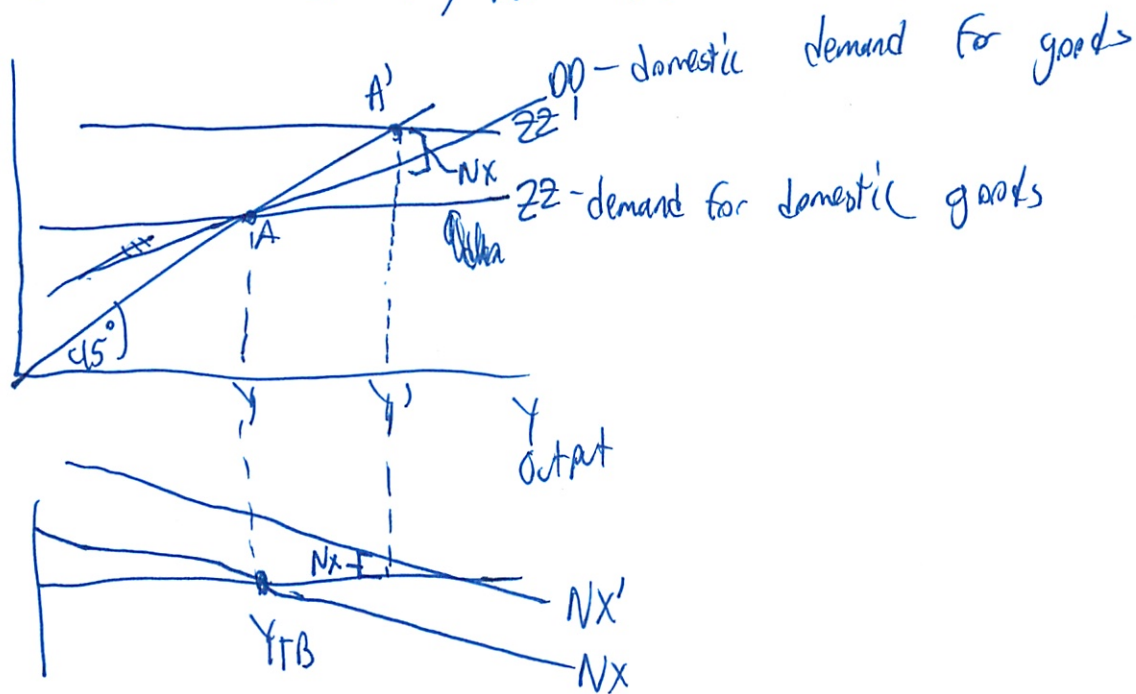 DD - domestic demand for goods
A'
ZZ'
NX
ZZ - demand for domestic goods
A
45°
Y
Y'
Y
Output
NX
NX'
YTB
NX